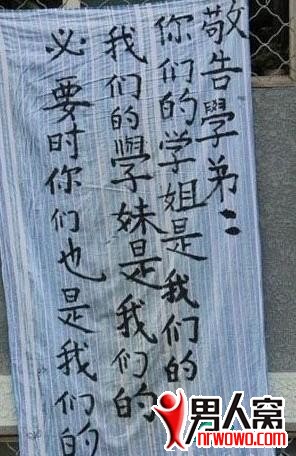 敬告學弟：
你们的学姐是我们的
我们的學妹是我们的
必要时你们也是我们的
男人窝
nrwowo.com